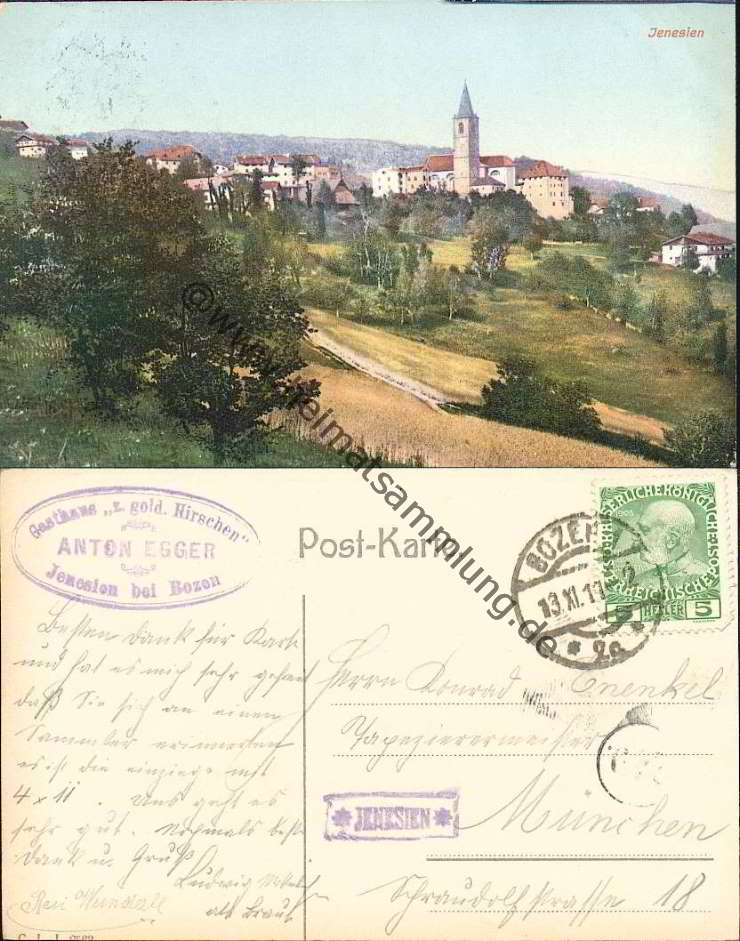 Jenesien
©www.heimatsammlung.de
Gasthaus „z. gold. Hirschen“
ANTON EGGER
Jenesien bei Bozen
Post-Karte
BOZEN 1
13.XI.11
* 2a
KAISERLICHE KÖNIGLICHE ÖSTERREICHISCHE POST
1908
5 HELLER 5
Besten Dank für Karte
und hat es mich sehr gefreut
daß Sie sich an einen
Sammler erinnerten
es ist die einzige mit
4 x 11. Uns geht es
sehr gut. Nochmals besten
Dank u. Gruß
Ludwig
als Braut
Resi
Herrn Konrad Enenkel
Tapezierermeister
München
Schraudolfstrasse 18
* JENESIEN *